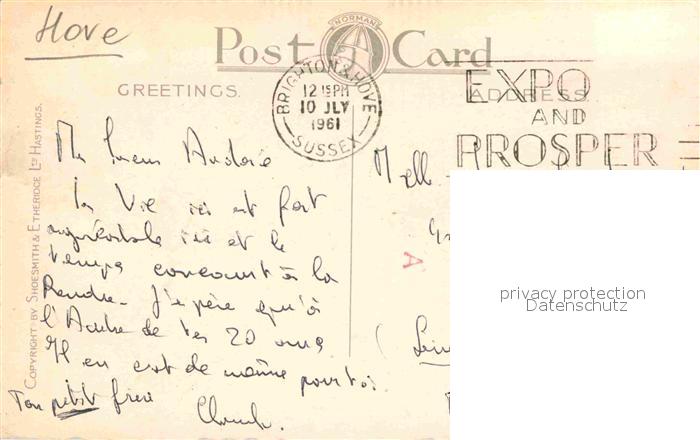 Hove
NORMAN
Post Card
GREETINGS.
ADDRESS
BRIGHTON & HOVE
12 15 PM
10 JLY
1961
SUSSEX
EXPO
AND
PROSPER
COPYRIGHT BY SHOESMITH & ETHERIDGE LTD HASTINGS.
Ma
La Vie ici est fort
agréable ici et le
temps concourt à la
Rendre. J'espère qu'à
l'Aube de tes 20 ans
Il en est de même pour toi.
Ton petit frère
Claude.
Melle
A
privacy protection
Datenschutz